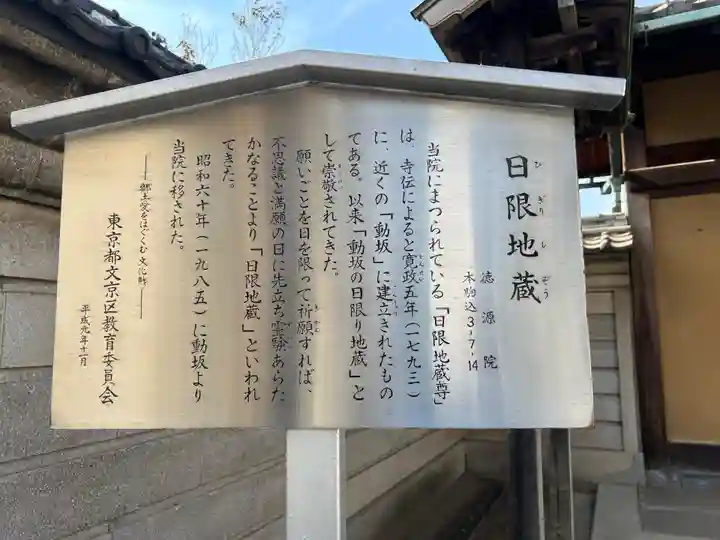 日限地蔵
ひぎりじぞう
徳源院
本駒込3-7-14
当院にまつられている「日限地蔵尊」
は、寺伝によると寛政五年（一七九三）
に、近くの「動坂」に建立されたもの
である。以来「動坂の日限り地蔵」と
して崇敬されてきた。
願いごとを日を限って祈願すれば、
不思議と満願の日に先立ち霊験あらた
かなることより「日限地蔵」といわれ
てきた。
昭和六十年（一九八五）に動坂より
当院に移された。
――郷土愛をはぐくむ文化財――
東京都文京区教育委員会
平成元年十一月